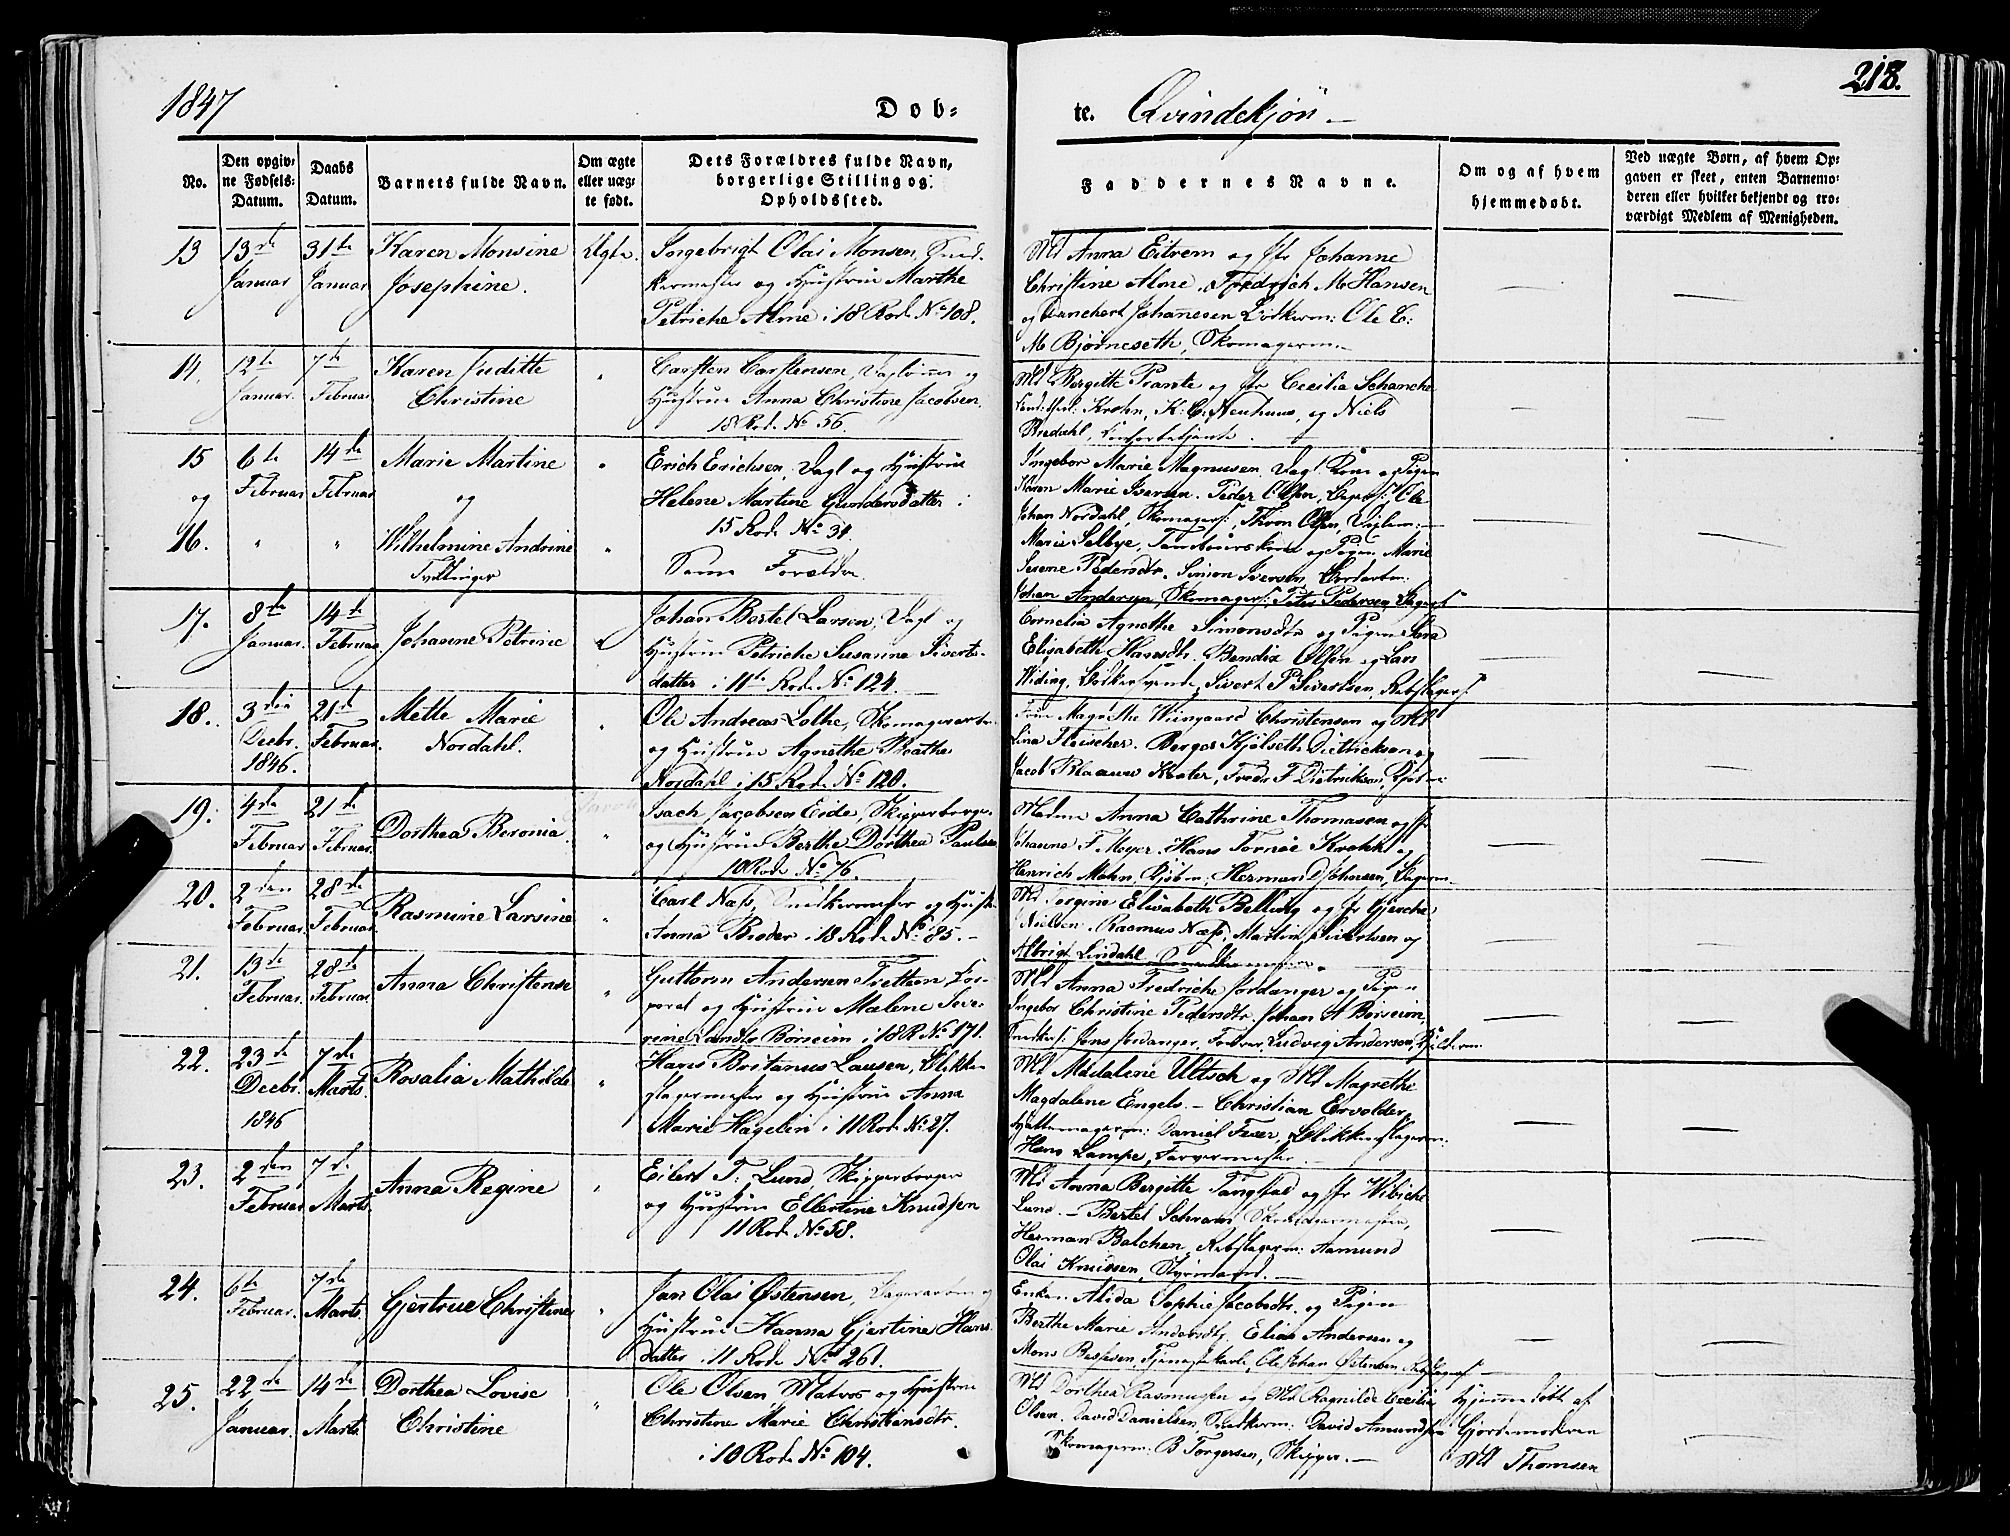 1847
Døb= te. Qvindekjøn
218.
No.
Den opgiv=
ne Fødsels=
Datum.
Daabs
Datum.
Barnets fulde Navn.
Om ægte
eller uæg=
te født.
Dets Forældres fulde Navn,
borgerlige Stilling og
Opholdssted.
Faddernes Navne.
Om og af hvem
hjemmedøbt.
Ved uægte Børn, af hvem Op=
gaven er skeet, enten Barnemo=
deren eller hvilket bekjendt og tro=
værdigt Medlem af Menigheden.
13
13de
Januar
31te
Januar
Karen Monsine
Josephine.
Ægte.
Ingebrigt Olai Monsen, Sned-
kermester og Hustrue Marthe
Petriche Alme i 18 Rode No 108.
Md Anna Eitrem og Jfr Johanne
Christine Alme, Fredrich M Hansen
og Danchert Johannesen Bødkerm: Ole C:
M Bjørneseth, Skomagerm.
14.
12te
Januar.
7de
Februar
Karen Juditte
Christine
Carsten Carstensen, og
Hustrue Anna Christine Jacobsen.
18 Rode No 56.
Md Bergitte Prante og Jfr Cecilia Schanche
Krohn, K: C. Neuhuus, og Niels
Bredahl,
15
og
16.
6te
Februar
14de
Februar
Marie Martine
og
Wilhelmine Andrine
Tvillinger
Erich Erichsen, Dagl og Hustrue
Helene Martine Gundersdatter i
15 Rode No 31.
Samme Forældre.
Ingebor Marie Magnusen, Dagl. Kone og Pigen
Karen Marie Iversen. Peder Olsen, Ole
Johan Nordahl, Skomagers:, Thron Olsen, Daglønn:
Marie Selbye, Tambourskone og Pigen Marie
Serene Pedersdtr. Simon Iversen,
Johan Andersen, Skomagers:, Peter Pedersen
17.
8de
Januar.
14de
Februar.
Johanne Petrine
Johan Bertel Larsen, Dagl og
Hustrue Petriche Susanne Siverts-
datter i 11te Rode No 124.
Cornelia Agnethe Simonsdtr og Pigen Sara
Elisabeth Hansdtr. Bendix Olsen og Lars
Widing, Bødkersvende, Sivert P Sivertsen, Rebslagers:
18.
3die
Decbr.
1846.
21de
Februar.
Mette Marie
Nordahl.
Ole Andreas Lothe, Skomagersvend
og Hustrue Agnethe Beathe
Nordahl i 15 Rode No 120.
Frue Magrethe Wiingaard Christensen og Md
Lina Fleischer. Berger Kjølseth Dietrichson og
Jacob Blaauw Koster, Fredr F Dietrichson, Kjøbm:
19.
4de
Februar
21de
Februar.
Dorthea Beronia.
Isach Jacobsen Eide, Skipperborger
og Hustrue Berthe Dorthea Paulsen
10 Rode No 76.
Madme Anna Cathrine Thomasen og Jfr
Johanne F Meyer. Hans Tornøe Krohn og
Henrich Mohn, Kjøbm, Herman D Johnsen,
20.
2den
Februar.
28de
Februar.
Rasmine Larsine
Carl Næss, Snedkermester og Hustr
Anna Broder i 18 Rode No 85.
Md Jorgine Elisabeth Bellung og Jfr Gjerche
Nielsen. Rasmus Næss, Martin Sivertsen og
Albrigt Lindahl, Snedkermestere.
21.
13de
Februar.
28de
Februar.
Anna Christense
Guttorm Andersen Tretteen Cor-
poral og Hustrue Malene Seve-
rine Larsdtr Børseim i 18 R No 171.
Md Anna Fredriche Jordanger og Pigen
Ingebor Christine Pedersdtr, Johan A Børseim,
Snedkers:, Jens Jordanger, Ludvig Andersen,
22.
23de
Decbr.
1846
7de
Marts.
Rosalia Mathilde
Hans Britanus Lausen, Blikken-
slagermester og Hustrue Anna
Marie Hagelin i 11 Rode No 27.
Md Madalene Ultsch og Md Magrethe
Magdalene Engels. – Christian Ervolder,
Hattemagerm: Daniel Feier, Blikkenslagerm:
Hans Lampe, Farvermester.
23.
2den
Februar
7de
Marts
Anna Regine
Eilert T: Lund, Skipperborger
og Hustrue Ellertine Knudsen
11 Rode No 58.
Md Anna Bergitte Tangstad og Jfr Wibiche
Lund. – Bertel Schram, Skomagermester,
Herman Balchen, Rebslagerm: Aamund
Olai Knudsen, Styrmand.
24.
6te
Februar.
7de
Marts.
Gjertrue Christine
Jan Olai Østensen, og
Hustrue Hanna Gjertine Hans-
datter i 11 Rode No 261.
Enken Alida Sophie Jacobsdtr. og Pigen
Berthe Marie Andersdtr, Elias Andersen og
Mons Bessesen, Tjenestekarle, Ole Johan Østensen, Rebslagers:
25.
22de
Januar.
14de
Marts.
Dorthea Lovise
Christine
Ole Olsen Matros og Hustrue
Christine Marie Christensdtr.
i 10 Rode No 104.
Md Dorthea Rasmussen og Md Ragnilde Cecilia
Olsen. David Danielsen, Snedkerm: David Amundsen
Skomagerm: B Torgersen, Skipper.
Hjemmedøbt af
Gjordemoderen
Md Thomsen